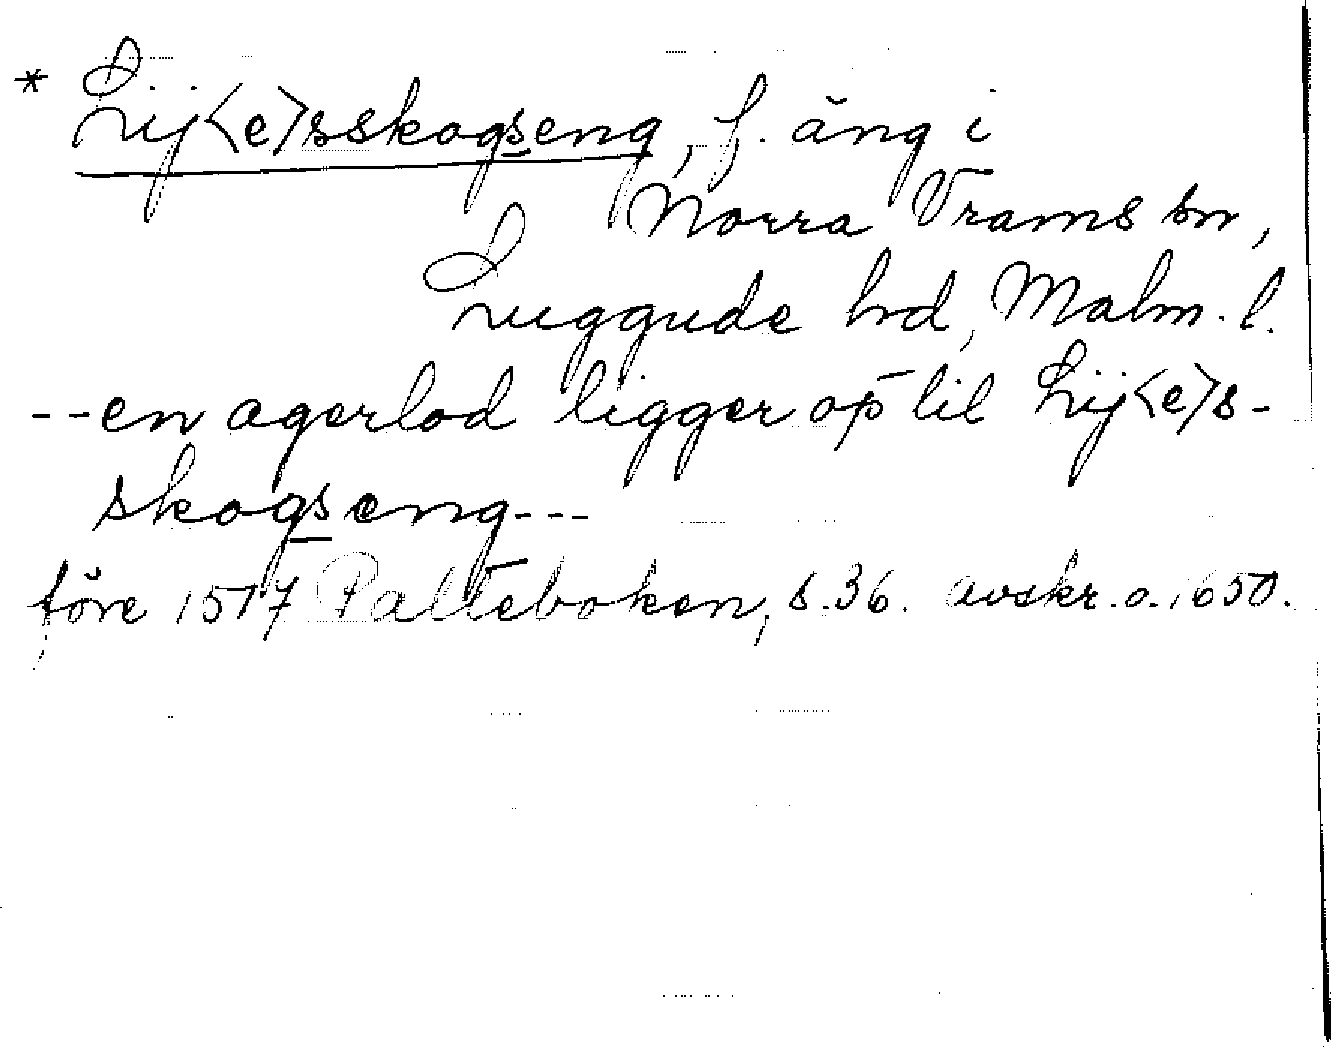 * Lij<e>sskogseng, f. äng i
Norra Vrams sn,
Luggude hd, Malm. l.
--en agerlod ligger op til Lij<e>s-
skogseng---
före 1517 Palteboken, s.36. avskr. o. 1650.